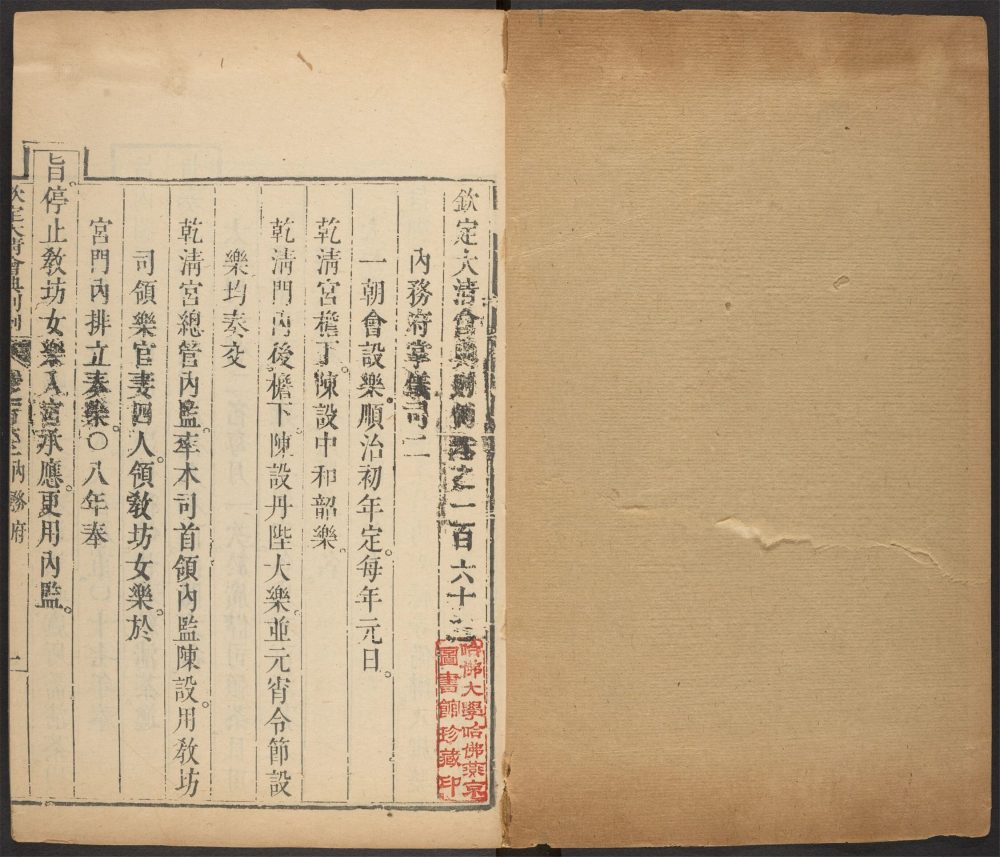 欽定大清會典則例卷之一百六十
內務府掌儀司二
一朝會設樂。順治初年定。每年元日。
乾淸宮檐下。陳設中和韶樂。
乾淸門內後檐下。陳設丹陛大樂。並元宵令節設
樂均奏。交
乾淸宮總管內監。率本司首領內監陳設。用敎坊
司領樂官妻四人。領敎坊女樂於
宮門內排立奏樂。〇八年奉
旨。停止敎坊女樂入宮承應。更用內監。
欽定大淸會典則例
內務府
一
哈佛大學哈佛燕京
圖書館珍藏印